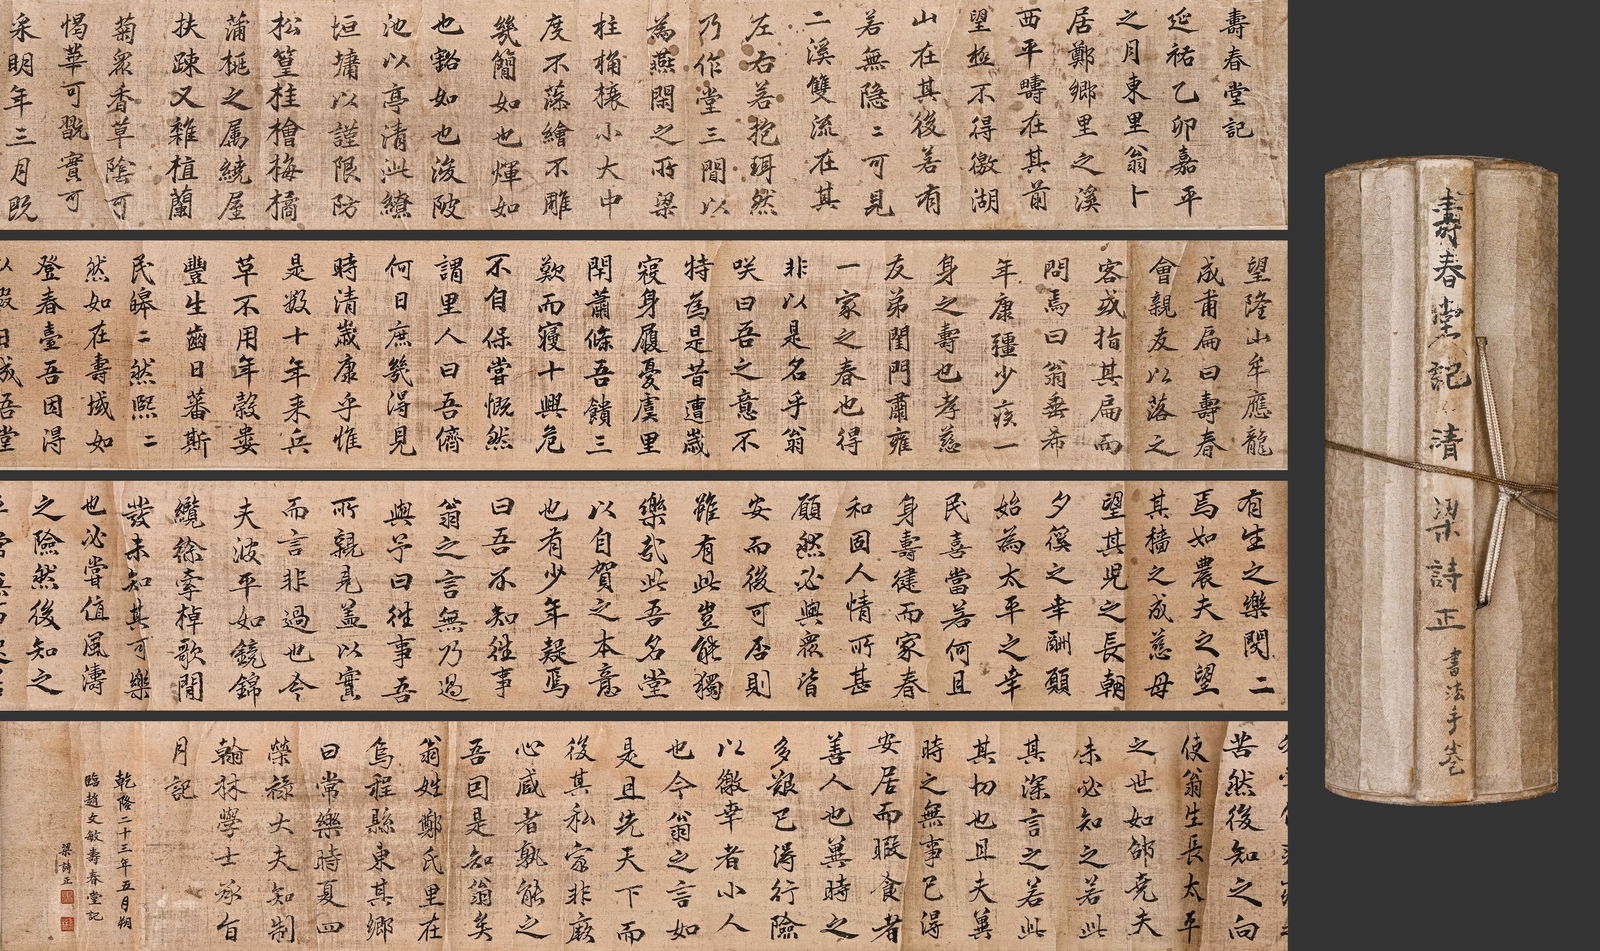 壽春堂記
延祐乙卯嘉平
之月東里翁卜
居鄭鄉里之溪
西平疇在其前
望極不得徼湖
山在其後若有
若無隐二可見
二溪雙流在其
左右若抱珥然
乃作堂三間以
為燕閑之所梁
柱桷榱小大中
度不藻繪不雕
幾簡如也煇如
也豁如也浚陂
池以亭清泚繚
垣墉以謹限防
松篁桂檜梅橘
蒲桃之属繞屋
扶踈又雜植蘭
菊衆香草陰可
愒華可翫實可
采明年三月既
望隆山牟應龍
成甫扁曰壽春
會親友以落之
客或指其扁而
問焉曰翁垂希
年康彊少疾一
身之壽也孝慈
友弟閨門肅雍
一家之春也得
非以是名乎翁
咲曰吾之意不
特為是昔遭歲
寖身履憂虞里
閈蕭條吾饋三
歎而寢十興危
不自保嘗慨然
謂里人曰吾儕
何日庶幾得見
時清歲康乎惟
是數十年来兵
草不用年穀婁
豐生齒日蕃斯
民皞二然熙二
然如在壽域如
登春臺吾因得
以
日成吾堂
有生之樂閔二
焉如農夫之望
其穡之成慈母
望其児之長朝
夕徯之幸酬願
始為太平之幸
民喜當若何且
身壽健而家春
和固人情所甚
願然必與衆皆
安而後可否則
雖有此豈能獨
樂哉此吾名堂
以自賀之本意
也有少年疑焉
曰吾不知徃事
翁之言無乃過
與予曰徃事吾
所親見盖以實
而言非過也今
夫波平如鏡錦
纜徐牽棹歌閒
發未知其可樂
也必嘗值風濤
之險然後知之
苦然後知之向
使翁生長太平
之世如邵堯夫
未必知之若此
其深言之若此
其切也且夫冀
時之無事已得
安居而暇食者
善人也冀時之
多艱已得行險
以徼幸者小人
也今翁之言如
是且先天下而
後其私家非厥
心感者孰能之
吾因是知翁矣
翁姓鄭氏里在
烏程縣東其鄉
曰常樂時夏四
榮禄大夫知制
翰林學士承旨
月記
乾隆二十三年五月朔
臨趙文敏壽春堂記
梁詩正
壽春堂記
清梁詩正
書法手卷